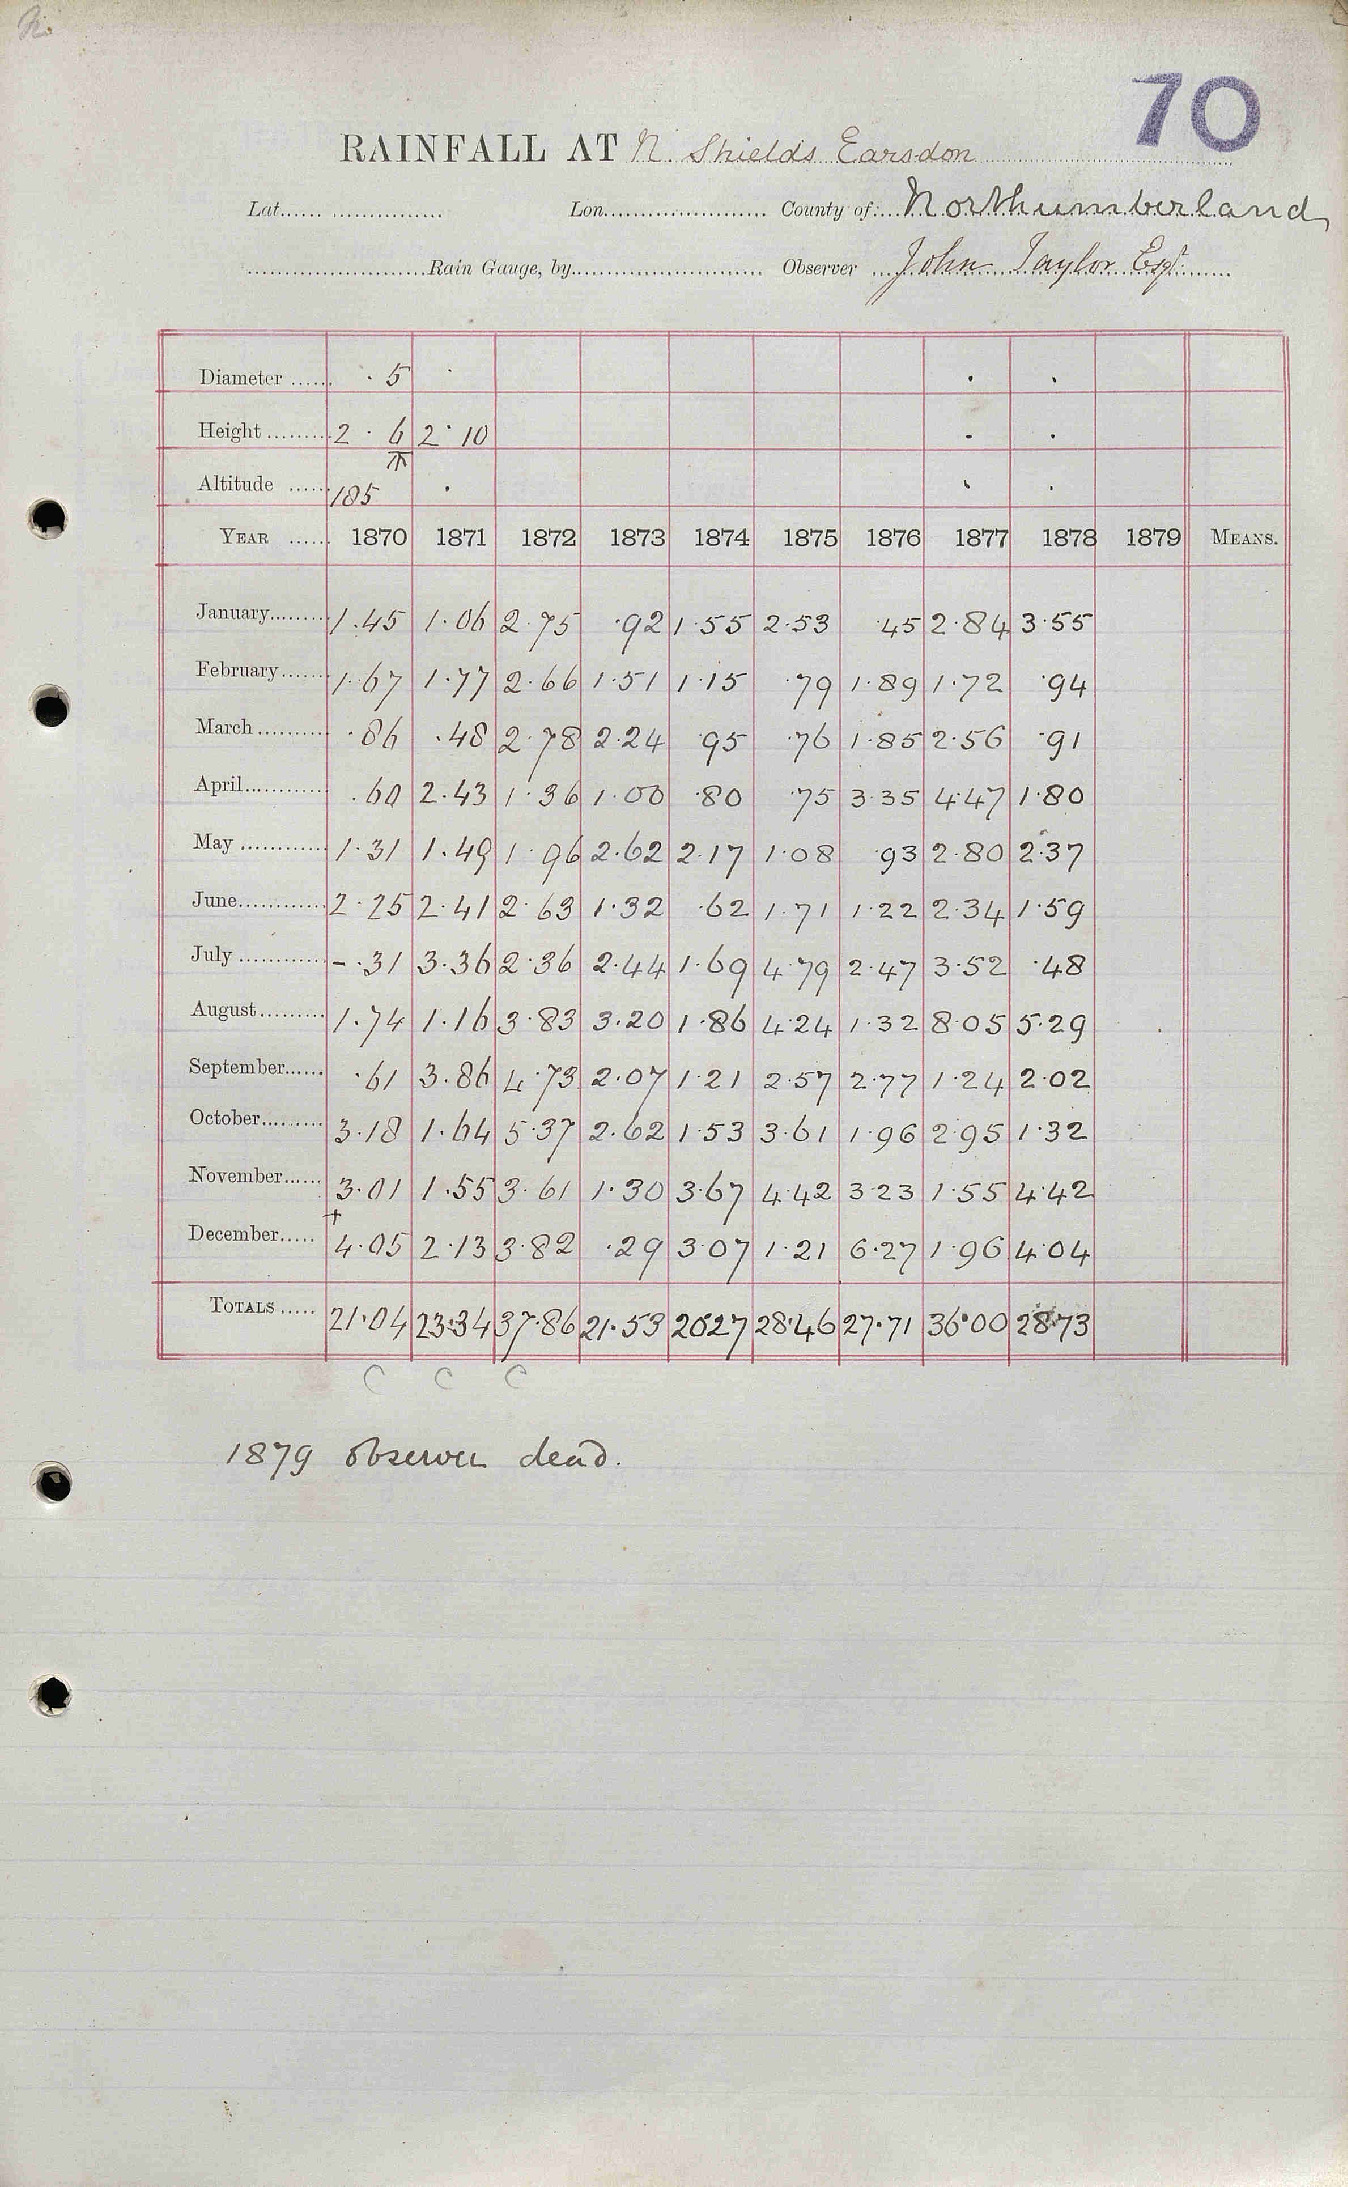 N.
70
RAINFALL AT N. Shields Earsdon
Lat. Lon. County of Northumberland
Rain Gauge, by Observer John Taylor Esqr.
Diameter · 5
Height 2 · 6 2 · 10
Altitude 185
YEAR 1870 1871 1872 1873 1874 1875 1876 1877 1878 1879 MEANS.
January 1.45 1.06 2.75 .92 1.55 2.53 .45 2.84 3.55
February 1.67 1.77 2.66 1.51 1.15 .79 1.89 1.72 .94
March .86 .48 2.78 2.24 .95 .76 1.85 2.56 .91
April .60 2.43 1.36 1.00 .80 .75 3.35 4.47 1.80
May 1.31 1.49 1.96 2.62 2.17 1.08 .93 2.80 2.37
June 2.25 2.41 2.63 1.32 .62 1.71 1.22 2.34 1.59
July -.31 3.36 2.36 2.44 1.69 4.79 2.47 3.52 .48
August 1.74 1.16 3.83 3.20 1.86 4.24 1.32 8.05 5.29
September .61 3.86 4.73 2.07 1.21 2.57 2.77 1.24 2.02
October 3.18 1.64 5.37 2.62 1.53 3.61 1.96 2.95 1.32
November 3.01 1.55 3.61 1.30 3.67 4.42 3.23 1.55 4.42
+
December 4.05 2.13 3.82 .29 3.07 1.21 6.27 1.96 4.04
TOTALS 21.04 23.34 37.86 21.53 20.27 28.46 27.71 36.00 28.73
C C C
1879 observer dead.